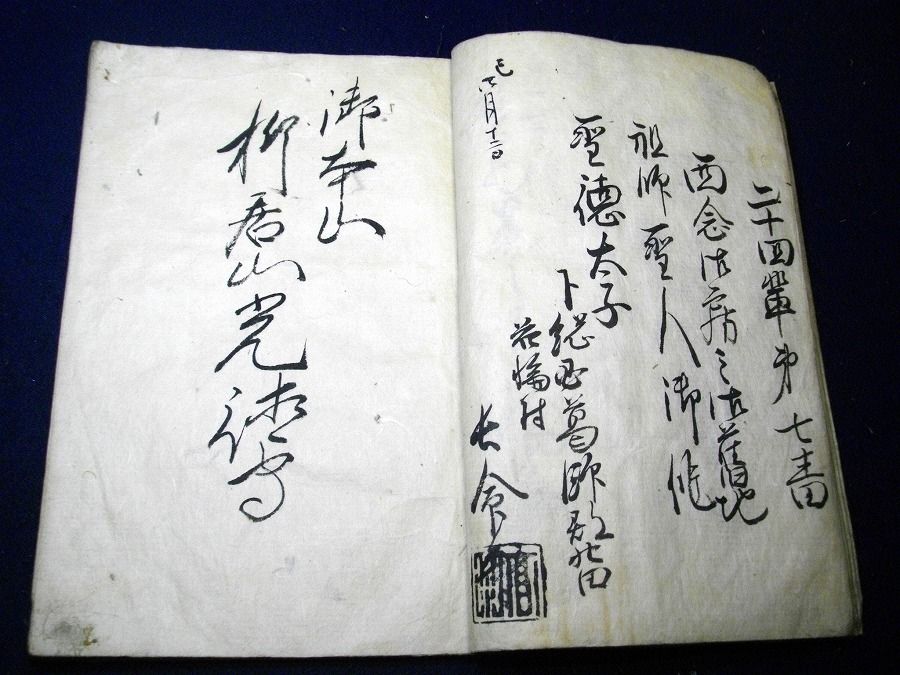 二十四輩第七番
西念法房之御旧地
祖師聖人御作
聖徳太子
下総国葛飾郡野田
花輪村
長命寺
巳四月十二日
御本山
柳居山光徳寺